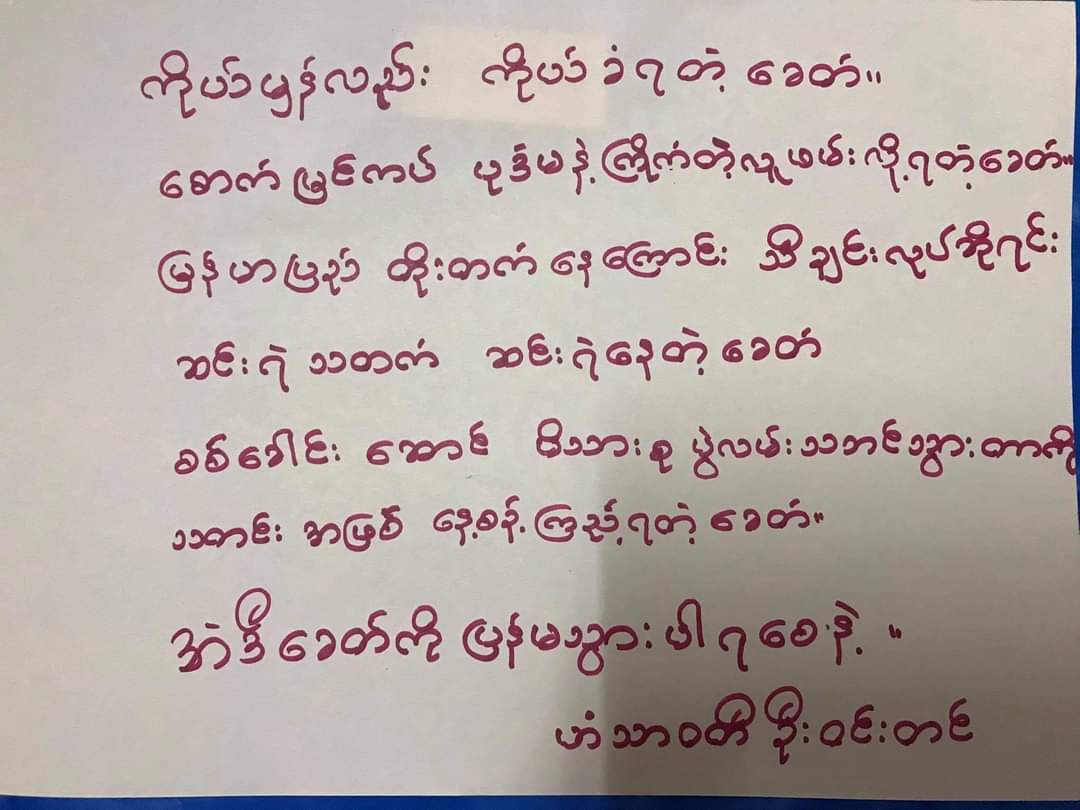 ကိုယ်မှန်လည်း ကိုယ်ခံရတဲ့ ခေတ်။
အောက်မြင်ကပ် ယုဒ္ဓမနဲ့ ကြိုက်တဲ့လူဖမ်းလို့ရတဲ့ခေတ်။
မြန်မာပြည် တိုးတက်နေကြောင်း သီချင်းလုပ်ဆိုရင်း
ဆင်းရဲသထက် ဆင်းရဲနေတဲ့ ခေတ်
စစ်ခေါင်းဆောင် မိသားစု ပွဲလမ်းသဘင်သွားတာကို
သတင်းအဖြစ် နေ့စဉ်ကြည့်ရတဲ့ ခေတ်။
အဲဒီခေတ်ကို ပြန်မသွားပါရစေနဲ့ ။
ဟံသာဝတီ ဦးဝင်းတင်